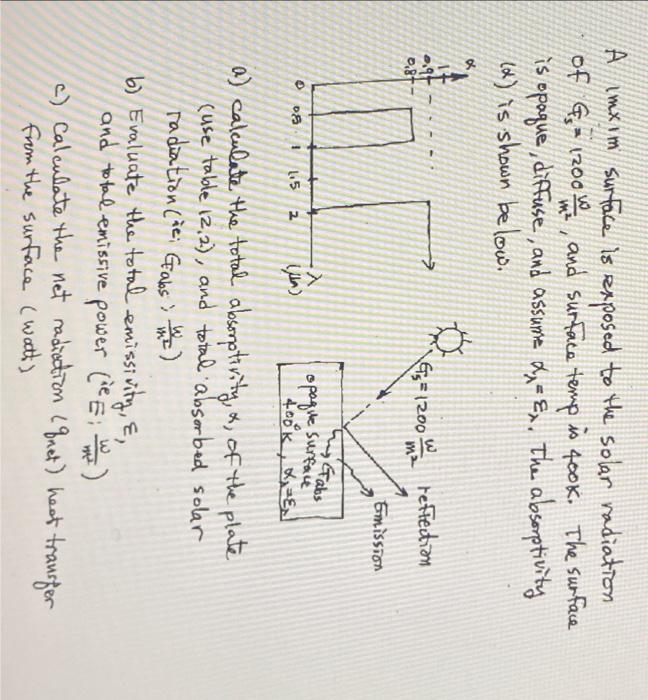 A 1mx1m surface is exposed to the solar radiation
of Gs = 1200 W/m², and surface temp is 400K. The surface
is opaque, diffuse, and assume αλ = ελ. The absorptivity
(α) is shown below.
α
1
0.9
0.8
0 0.5 1 1.5 2 λ (μm)
Gs = 1200 W/m²
reflection
Emission
Gabs
opaque surface
400°K, αλ = ελ
a) calculate the total absorptivity, α, of the plate
(use table 12.2), and total absorbed solar
radiation (ie; Gabs; W/m²)
b) Evaluate the total emissivity, ε,
and total emissive power (ie E; W/m²)
c) Calculate the net radiation (qnet) heat transfer
from the surface (watt)